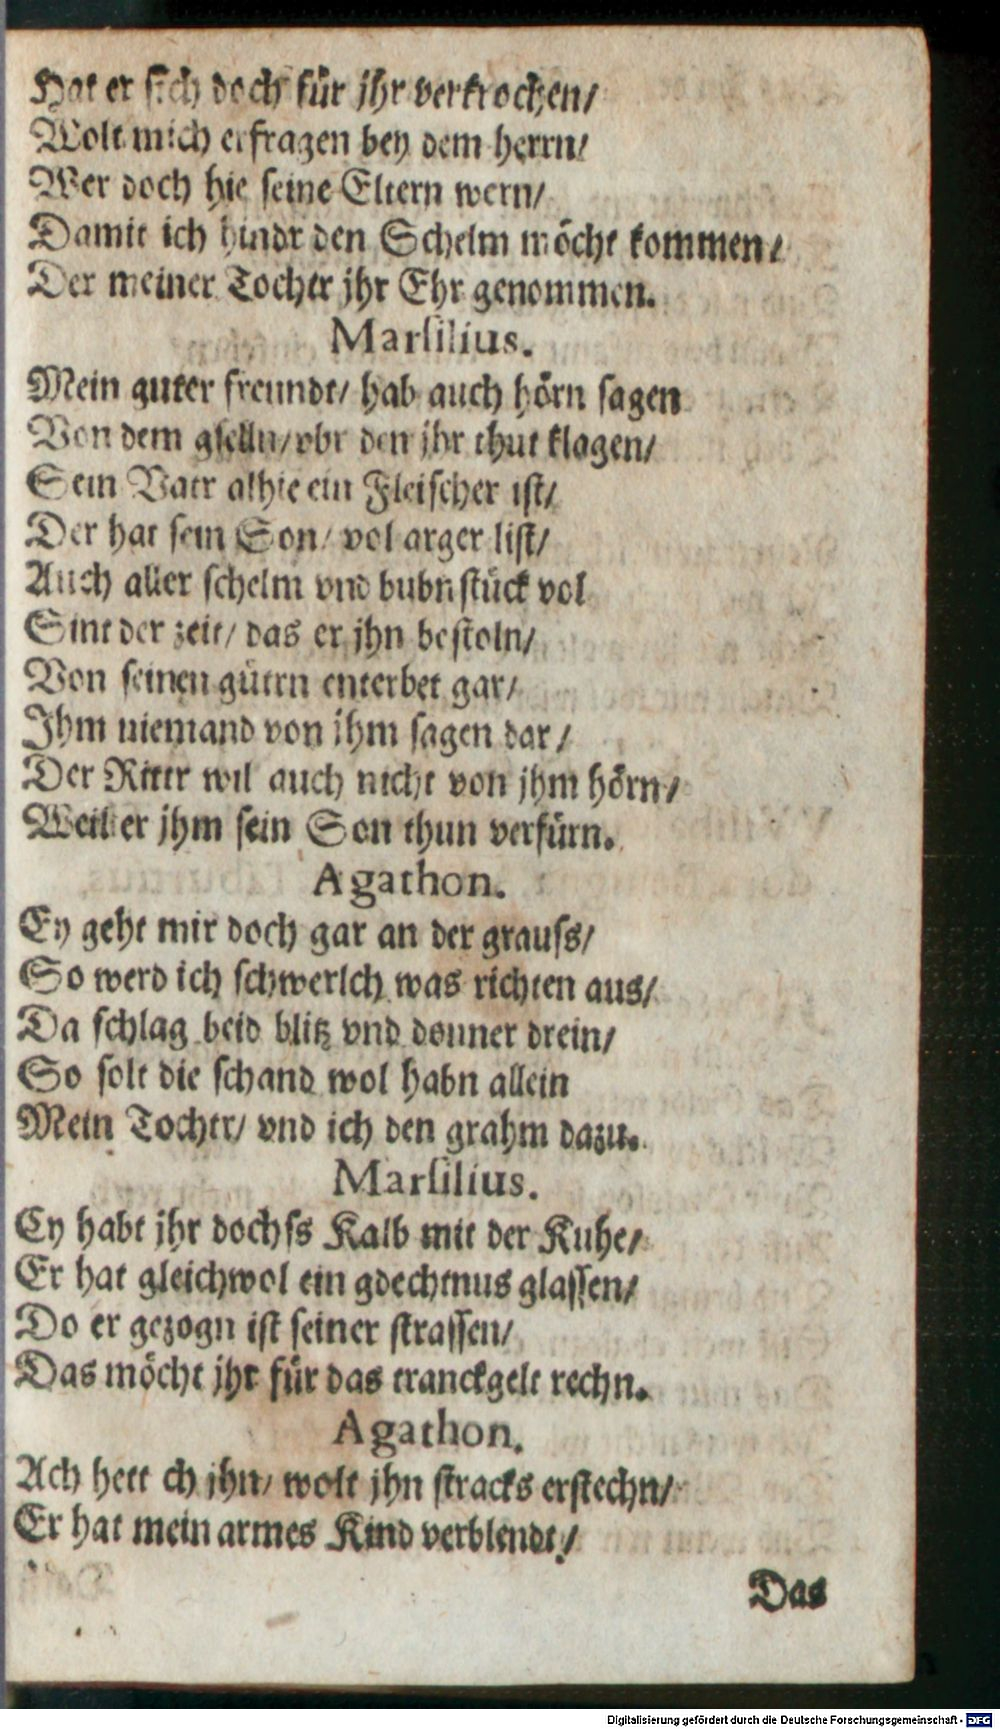 Hat er sich doch für jhr verkrochen/
Wolt mich erfragen bey dem herrn/
Wer doch hie seine Eltern wern/
Damit ich hindr den Schelm möcht kommen/
Der meiner Tochtr jhr Ehr genommen.
Marsilius.
Mein guter freundt/ hab auch hörn sagen
Von dem gselln/ vbr den jhr thut klagen/
Sein Vatr alhie ein Fleischer ist/
Der hat sein Son/ vol arger list/
Auch aller schelm vnd bubnstück vol
Sint der zeit/ das er jhn bestoln/
Von seinen gütrn enterbet gar/
Ihm niemand von jhm sagen dar/
Der Rittr wil auch nicht von jhm hörn/
Weil er jhm sein Son thun verfürn.
Agathon.
Ey geht mir doch gar an der grauss/
So werd ich schwerlch was richten aus/
Da schlag beid blitz vnd donner drein/
So solt die schand wol habn allein
Mein Tochtr/ vnd ich den grahm dazu.
Marsilius.
Ey habt jhr dochss Kalb mit der Kuhe/
Er hat gleichwol ein gdechtnus glassen/
Do er gezogn ist seiner strassen/
Das möcht jhr für das tranckgelt rechn.
Agathon.
Ach hett ch jhn/ wolt jhn stracks erstechn/
Er hat mein armes Kind verblendt/
Das
Digitalisierung gefördert durch die Deutsche Forschungsgemeinschaft - DFG